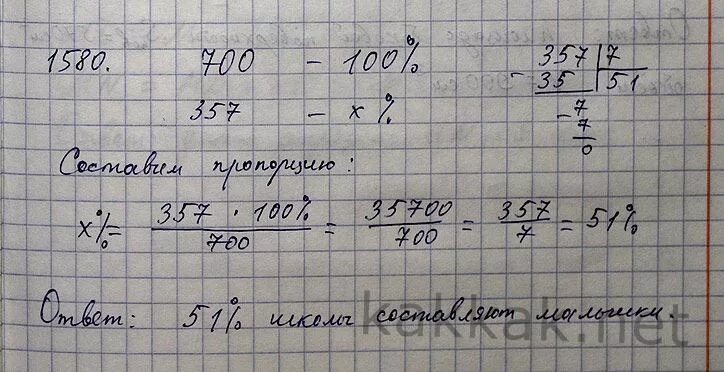 1580. 700 - 100% - 357 | 7
357 - x % 35 | 51
- 7
7
0
Составим пропорцию:
x% = 357 · 100% / 700 = 35700 / 700 = 357 / 7 = 51%
Ответ: 51% школы составляют малышки.
kakkak.net